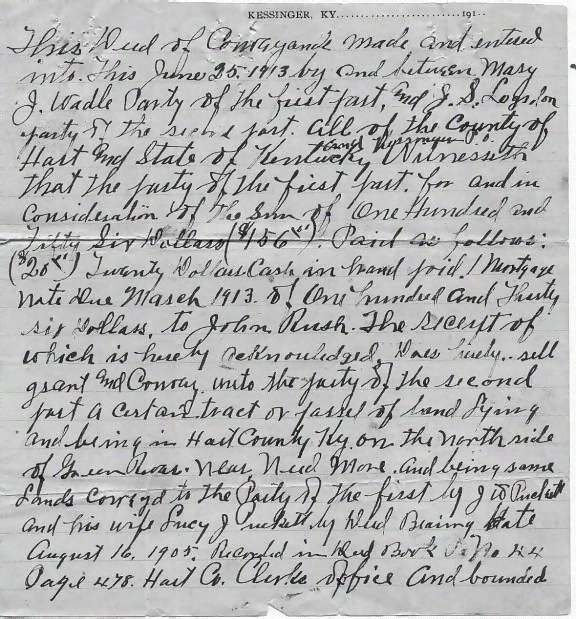 KESSINGER, KY. 191
This Deed of Convayance made and entered
into. This June 25. 1913. by and between Mary
J. Wadle Party of the first part, and J. S. Logsdon
party of the second part. all of the County of
Hart and State of Kentucky and Kessinger P.O. Witnesseth
that the party of the first part. for and in
Consideration of the Sum of One Hundred and
Fifty Six Dollars ($156 xx). Paid as follows:
($20 xx) Twenty Dollars Cash in hand paid 1 Mortgage
note Due March 1913. of One hundred and Thirty
six Dollars, to John Rush. The receipt of
which is hereby acknowledged, Does hereby. sell
grant and Convay. unto the party of the second
part a certain tract or passel of land Lying
and being in Hart County Ky. on the north side
of Green River. Near Need More. and being same
Lands convayd to the Party of the first by J W Puckett
and his wife Lucy J Puckett by Deed Bearing date
August 16. 1905. Recorded in Deed Book No 44
Page 478. Hart Co. Clerks office and bounded